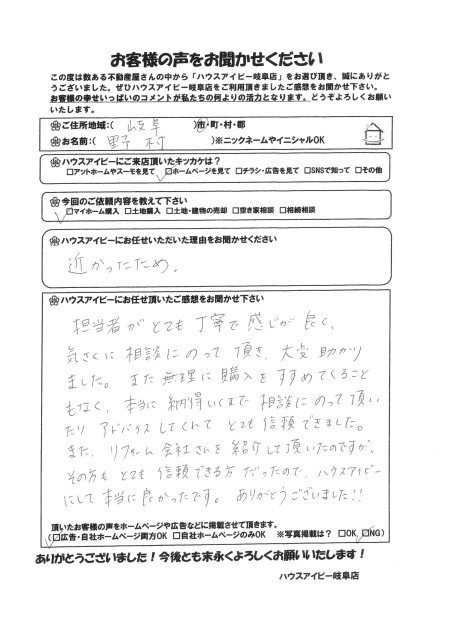 お客様の声をお聞かせください
この度は数ある不動産屋さんの中から「ハウスアイビー岐阜店」をお選び頂き、誠にありがと
うございました。ぜひハウスアイビー岐阜店をご利用頂きましたご感想をお聞かせ下さい。
お客様の幸せいっぱいのコメントが私たちの何よりの活力となります。どうぞよろしくお願い
いたします。
ご住所地域:( 岐阜 )市・町・村・郡
お名前:( 野村 )※ニックネームやイニシャルOK
ハウスアイビーにご来店頂いたキッカケは?
□アットホームやスーモを見て ☑ホームページを見て □チラシ・広告を見て □SNSで知って □その他
今回のご依頼内容を教えて下さい
☑マイホーム購入 □土地購入 □土地・建物の売却 □空き家相談 □相続相談
ハウスアイビーにお任せいただいた理由をお聞かせください
近かったため。
ハウスアイビーにお任せ頂いたご感想をお聞かせ下さい
担当者がとても丁寧で感じが良く、
気さくに相談にのって頂き、大変助かり
ました。また無理に購入をすすめてくること
もなく、本当に納得いくまで相談にのって頂い
たりアドバイスしてくれてとても信頼できました。
また、リフォーム会社さんを紹介して頂いたのですが、
その方もとても信頼できる方だったので、ハウスアイビー
にして本当に良かったです。ありがとうございました!!
頂いたお客様の声をホームページや広告などに掲載させて頂きます。
(☑広告・自社ホームページ両方OK □自社ホームページのみOK ※写真掲載は? □OK ☑NG)
ありがとうございました!今後とも末永くよろしくお願いいたします!
ハウスアイビー岐阜店